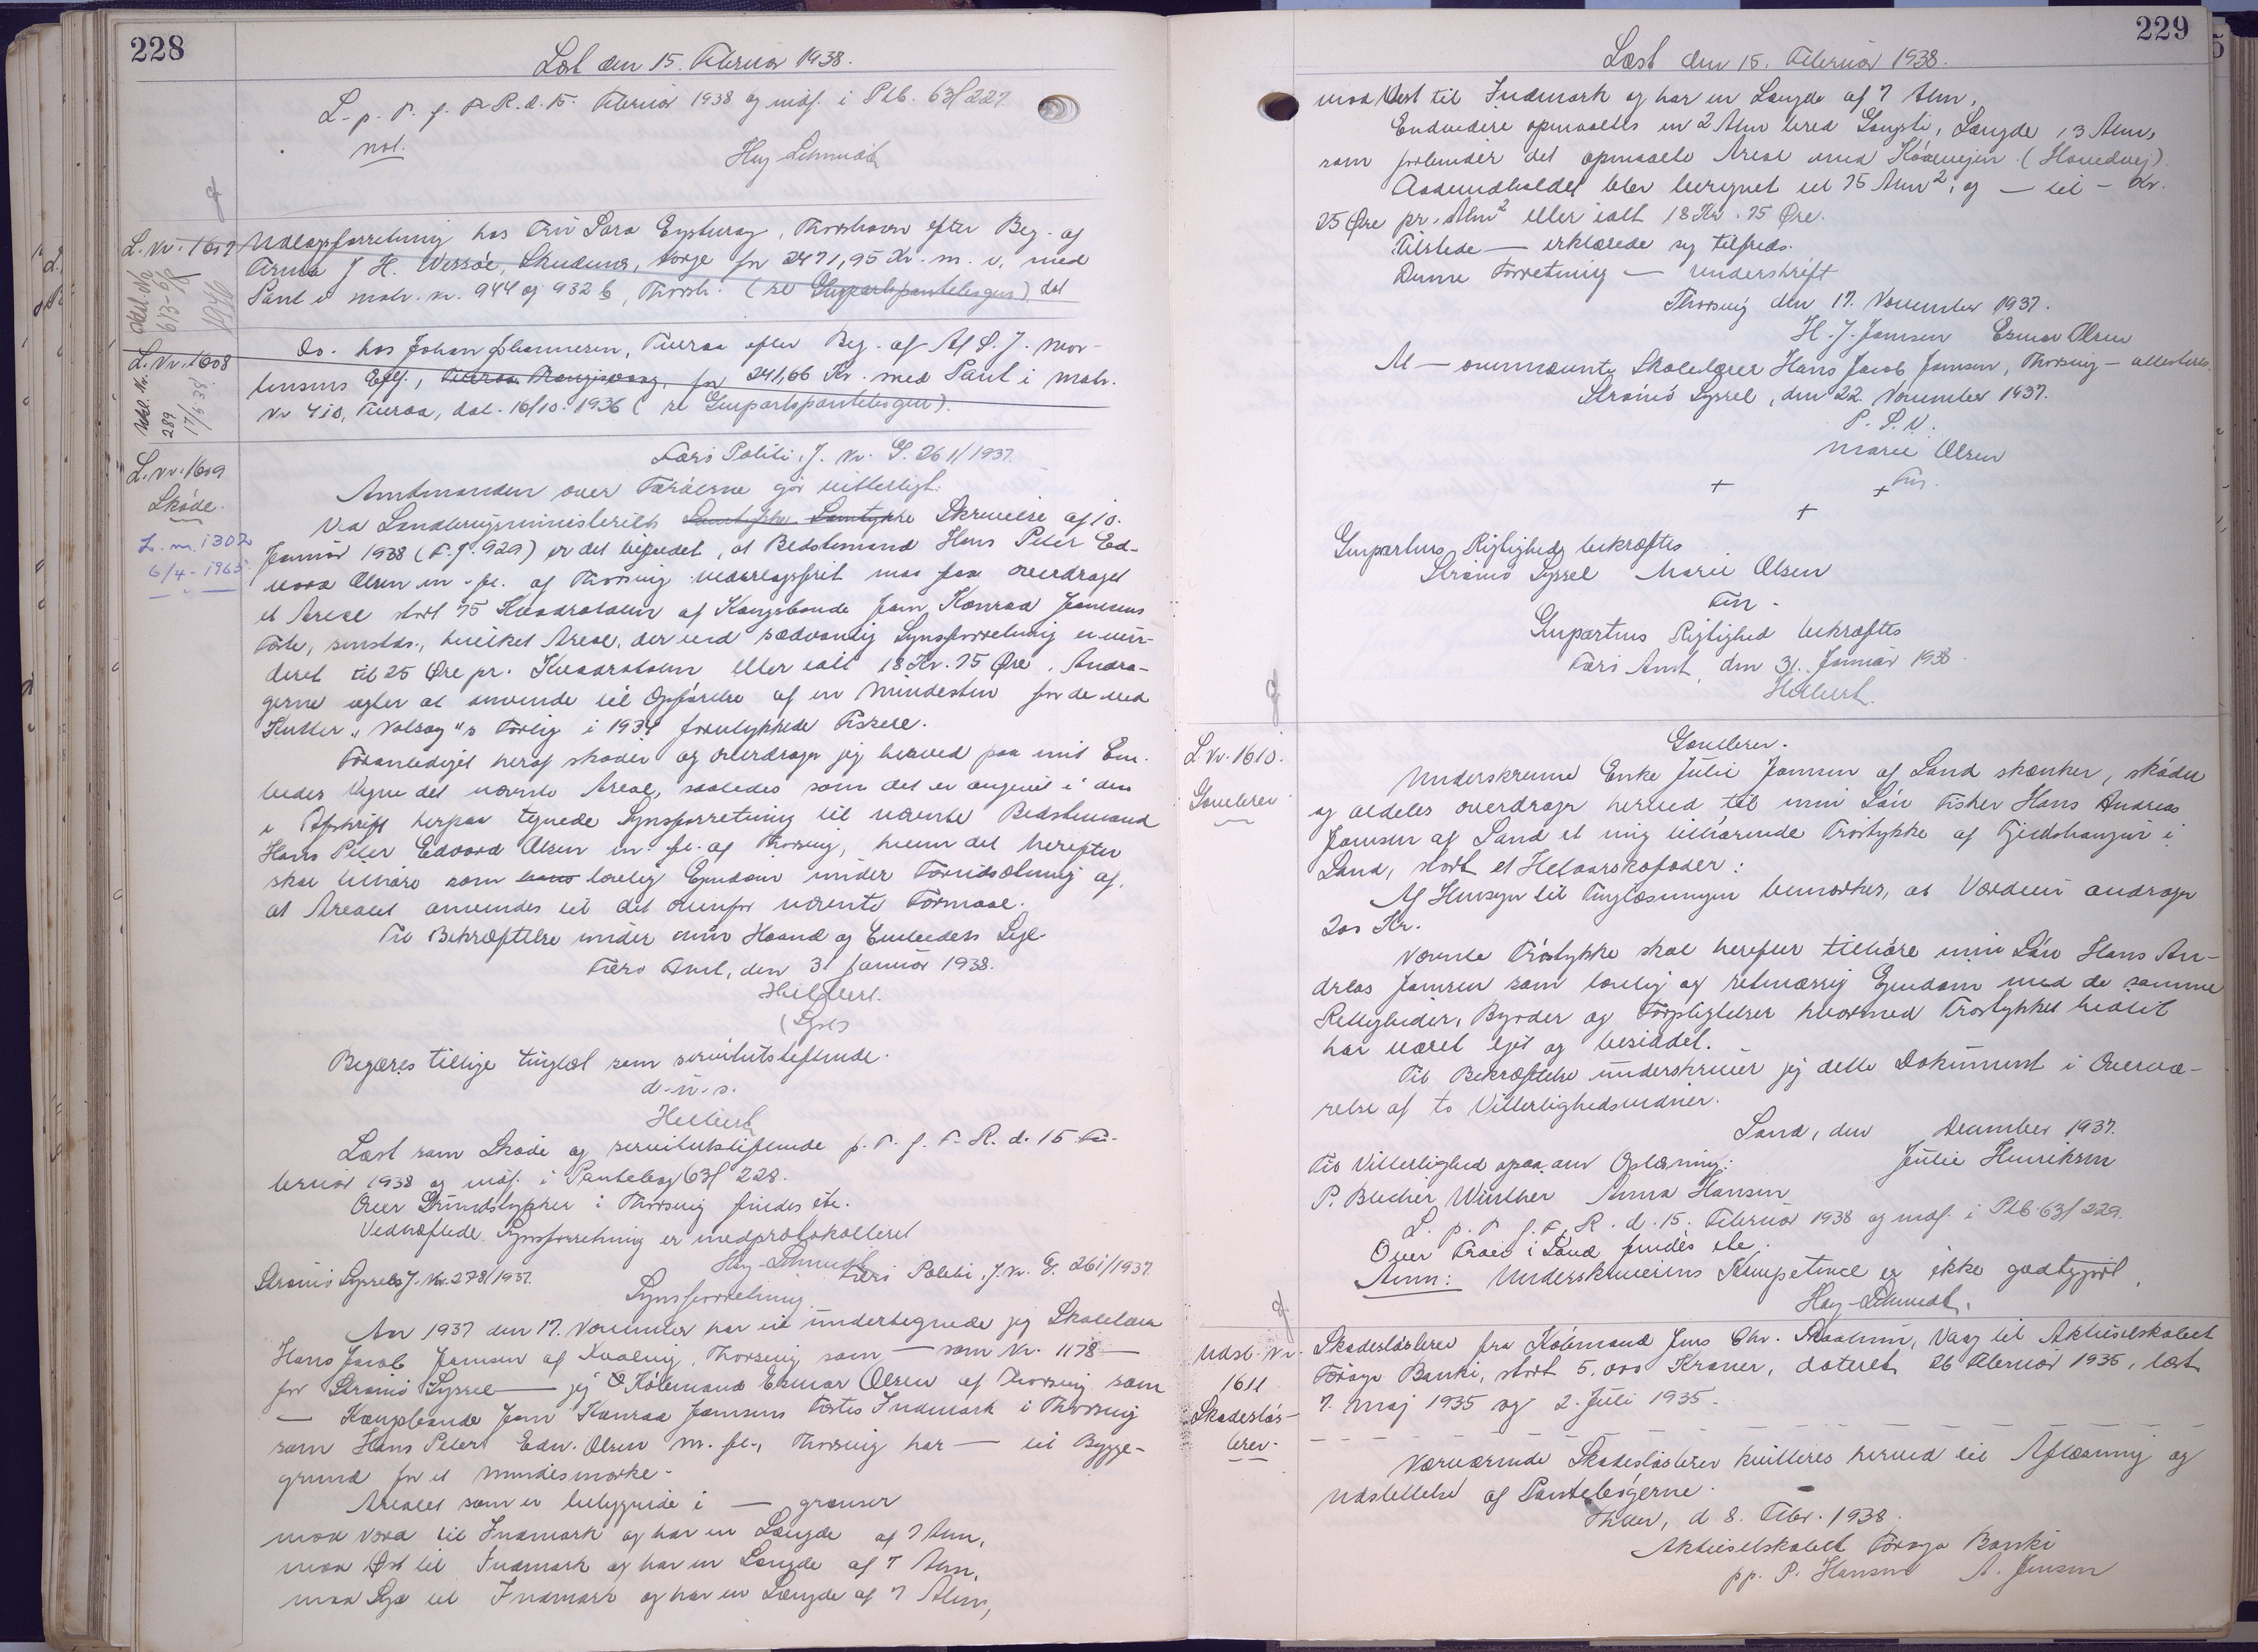 228
Læst den 15. Februar 1938.
L. p. T. f. F. R. d. 15. Februar 1938 og indf. i Ptb. 63/227.
nol.
Hey-Schmidt
L. Nr. 1607
Udlægsforretning hos Frú Sara Eysturoy, Thorshavn efter Beg. af
Firma J. H. Wessøe, Skudenes, Norge for 2471,95 Kr. m. v. med
Pant i matr. nr. 944 og 932 b, Thorsh. (se Genpartspantebogen) dat
L. Nr. 1608
Do. hos Johan Johannesen, Tveraa efter Beg. af Af S. J. Mor-
tensens Eftf., Tveraa Trangisvaag, for 241,66 Kr. med Pant i matr.
Nr 410, Tveraa, dat. 16/10. 1936 (se Genpartspantebogen).
Udsl. Nr.
289
17/5 38
L. Nr. 1609
Skøde.
L. nr. 1302
6/4 - 1965
Færø Politi, J. Nr. G. 261/1937.
Amtmanden over Færøerne gør vitterligt:
Ved Landbrugsministeriets Samtykke Samtykke Skrivelse af 10.
Januar 1938 (F. J. 929) er det bifaldet, at Bedstemand Hans Peter Ed-
vard Olsen m. fl. af Thorsvig vederlagsfrit maa faa overdraget
et Areal stort 75 Kvadratalen af Kongsbonde Joen Konrad Joensens
Fæste, smstds., hvilket Areal, der ved sædvanlig Synsforretning er vur-
deret til 25 Øre pr. Kvadratalen eller ialt 18 Kr. 75 Øre, Andra-
gerne agter at anvende til Opførelse af en Mindesten for de ved
Kutter "Nolsoy"s Forlig i 1934 forulykkede Fiskere.
Foranlediget heraf skøder og overdrager jeg herved paa mit Em-
bedes Vegne det nævnte Areal, saaledes som det er angivet i den
i Afskrift herpaa tegnede Synsforretning til nævnte Bedstemand
Hans Peter Edvard Olsen m. fl. af Thorsvig, hvem det herefter
skal tilhøre som hans lovlig Ejendom under Forudsætning af,
at Arealet anvendes til det ovenfor nævnte Formaal.
Til Bekræftelse under min Haand og Embedets Segl.
Færø Amt, den 31 Januar 1938.
Hilbert.
(Segl)
Begæres tillige tinglæst som servitutstiftende.
d. u. s.
Hilbert
Læst som Skøde og servitutstiftende p. T. f. F. R. d. 15 Fe-
bruar 1938 og indf. i Pantebog 63/228.
Over Grundstykker i Thorsvig findes ite.
Vedhæftede Synsforretning er medprotokolleret
Hey-Schmidt
Strømø Syssels J. Nr. 278/1937.
Færø Politi, J. Nr. G. 261/1937.
Synsforretning.
Aar 1937 den 17. November har vi undertegnede jeg Skolelærer
Hans Jacob Joensen af Kvalvig, Thorsvig som — som Nr. 1178 —
for Strømø Syssel — jeg Købmand Esmar Olsen af Thorsvig som
— Kongsbonde Joen Konrad Joensens Fæstes Indmark i Thorsvig
som Hans Peter Edv. Olsen m. fl., Thorsvig har — til Bygge-
grund for et Mindesmærke.
Arealet som er beliggende i — grænser
mod Nord til Indmark og har en Længde af 7 Alen,
mod Øst til Indmark og har en Længde af 7 Alen,
mod Syd til Indmark og har en Længde af 7 Alen,
229
Læst den 15. Februar 1938.
mod Vest til Indmark og har en Længde af 7 Alen,
Endvidere opmaaltes en 2 Alen bred Gangsti, Længde 13 Alen,
som forbinder det opmaalte Areal med Kørevejen (Hovedvej).
Arealindholdet blev beregnet til 75 Alen², og — til — Kr.
25 Øre pr. Alen² eller ialt 18 Kr. 75 Øre.
Tilstede — erklærede sig tilfreds.
Denne Forretning — underskrift
Thorsvig den 17. November 1937.
H. J. Joensen Esmar Olsen
At — ovennævnte Skolelærer Hans Jacob Joensen, Thorsvig — attesteres.
Strømø Syssel, den 22. November 1937.
P. S. V.
Marie Olsen
Fm.
+ + +
Genpartens Rigtighed bekræftes
Strømø Syssel Marie Olsen
Fm.
Genpartens Rigtighed bekræftes
Færø Amt, den 31. Januar 1938.
Hilbert.
L. Nr. 1610.
Gavebrev
Gavebrev.
Underskrevne Enke Julie Joensen af Sand skænker, skøder
og aldeles overdrager herved til min Søn Fisker Hans Andreas
Joensen af Sand et mig tilhørende Trøstykke af Gjerdshaugur i
Sand, stort et Helaarskofoder:
Af Hensyn til Tinglæsningen bemærkes, at Værdien andrager
200 Kr.
Nævnte Trøstykke skal herefter tilhøre min Søn Hans An-
dreas Joensen som lovlig og retmæssig Ejendom med de samme
Rettigheder, Byrder og Forpligtelser hvormed Trøstykket hidtil
har været ejet og besiddet.
Til Bekræftelse underskriver jeg dette Dokument i Overvæ-
relse af to Vitterlighedsvidner.
Sand, den December 1937.
Til Vitterlighed ogsaa om Oplæsning:
Julie Henriksen
P. Blicher Winther Anna Hansen
L. p. T. f. F. R. d. 15. Februar 1938 og indf. i Ptb. 63/229.
Over Trøer i Sand findes ite.
Anm: Underskriverens Kompetence er ikke godtgjort.
Hey-Schmidt.
Udsl. Nr.
1611
Skadesløs-
brev.
Skadesløsbrev fra Købmand Jens Chr. , Vaag til Aktieselskabet
Føroya Banki, stort 5.000 Kroner, dateret 26 Februar 1935, læst
7. Maj 1935 og 2. Juli 1935.
Nærværende Skadesløsbrev kvitteres herved til Aflæsning og
Udslettelse af Pantebøgerne.
Thvn, d 8. Febr. 1938.
Aktieselskabet Føroya Banki
pp. P. Hansen A. Jensen